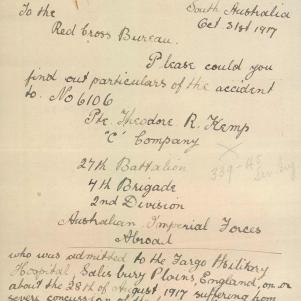 South Australia
To the Oct 31st 1917
Red Cross Bureau.
Please could you
find out particulars of the accident
to. No 6106
Pte. Theodore R. Kemp
"C" Company
27th Battalion
4th Brigade
2nd Division
Australian Imperial Forces
Abroad
who was admitted to the Fargo Military
Hospital, Salesbury Plains, England, on or
about the 28th of August, 1917 suffering from
severe concussion of the